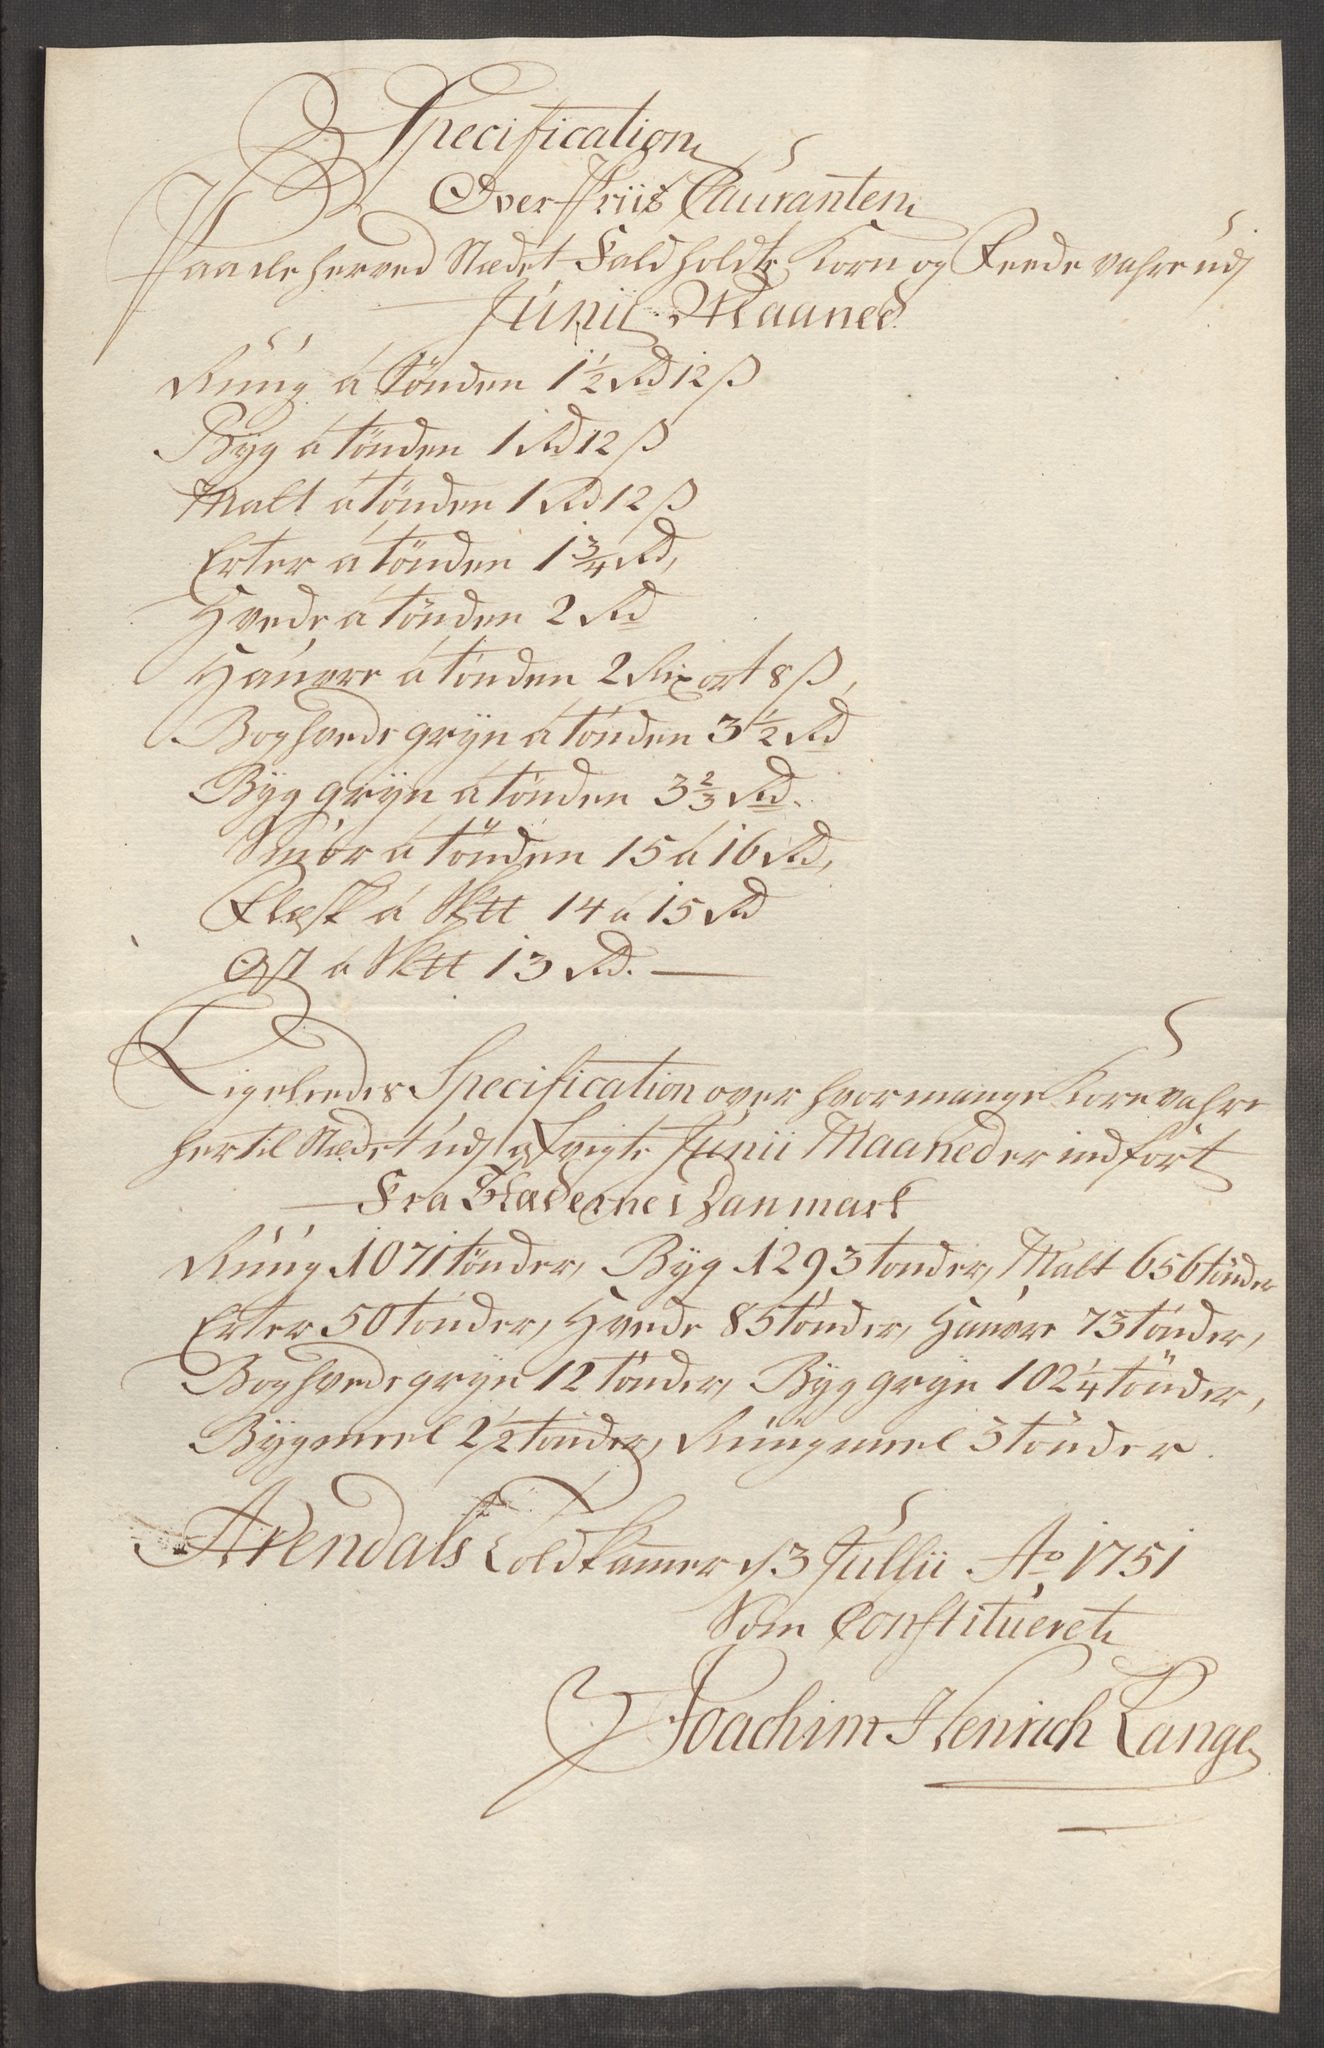 Specification
Over Priis Couranten
Paa de herved Stædet Fald holdte Korn og Feede vahre udj
Junii Maaned
Rüug á Tönden 1½ Rd 12 ß
Byg á Tönden 1 Rd 12 ß
Malt á Tönden 1 Rd 12 ß
Erter á Tönden 1¾ Rd,
Hvede á Tönden 2 Rd
Hauvre á Tönden 2 Rixort 8 ß,
Boghvede gryn á Tönden 3½ Rd
Byg gryn á Tönden 3⅔ Rd.
Smör á Tönden 15 á 16 Rd,
Flesk á Sk℔ 14 á 15 Rd
Ost á Sk℔ 13 Rd.
Ligeleedes Specification over hvormange Kornvahre
hertil Stædet udj afvigte Junii Maaned er indfört
Fra Stæderne i Danmark
Rüug 1071 Tönder, Byg 1293 Tönder, Malt 656 Tönder
Erter 50 Tönder, Hvede 85 Tönder, Hauvre 73 Tönder,
Boghvede gryn 12 Tönder, Byg gryn 102¼ Tönder,
Bygmeel 2½ Tönder, Rüugmeel 5 Tönder.
Arendals Toldkamer d 3 Julii Ao 1751
Som Constitueret
Joachim Henrich Lange